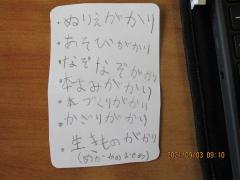 ・ぬりえがかり
・あそびがかり
・なぞなぞがかり
・本よみがかり
・本づくりがかり
・かざりがかり
・生きものがかり
2021/09/03 09:10